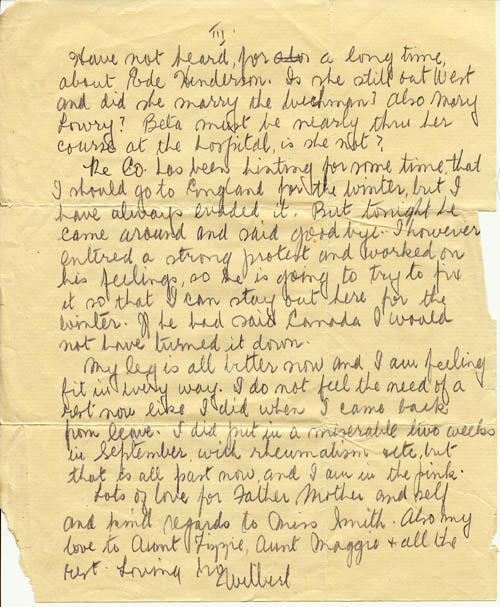 III.
Have not heard, for a long time,
about Ede Henderson. Is she still out West
and did she marry the Dutchman? Also Mary
Lowry? Beta must be nearly thru her
course at the hospital, is she not?
The Co. has been hinting for some time, that
I should go to England for the winter, but I
have always evaded it. But tonight he
came around and said good bye. I however
entered a strong protest and worked on
his feelings, so he is going to try to fix
it so that I can stay out here for the
winter. If he had said Canada I would
not have turned it down.
My leg is all better now and I am feeling
fit in every way. I do not feel the need of a
rest now like I did when I came back
from leave. I did put in a miserable two weeks
in September, with rheumatism etc, but
that is all past now, and I am in the pink.
Lots of love for Father Mother and self
and kind regards to Miss Smith. Also my
love to Aunt Aunt Maggie + all the
rest. Loving bro
Wilbert